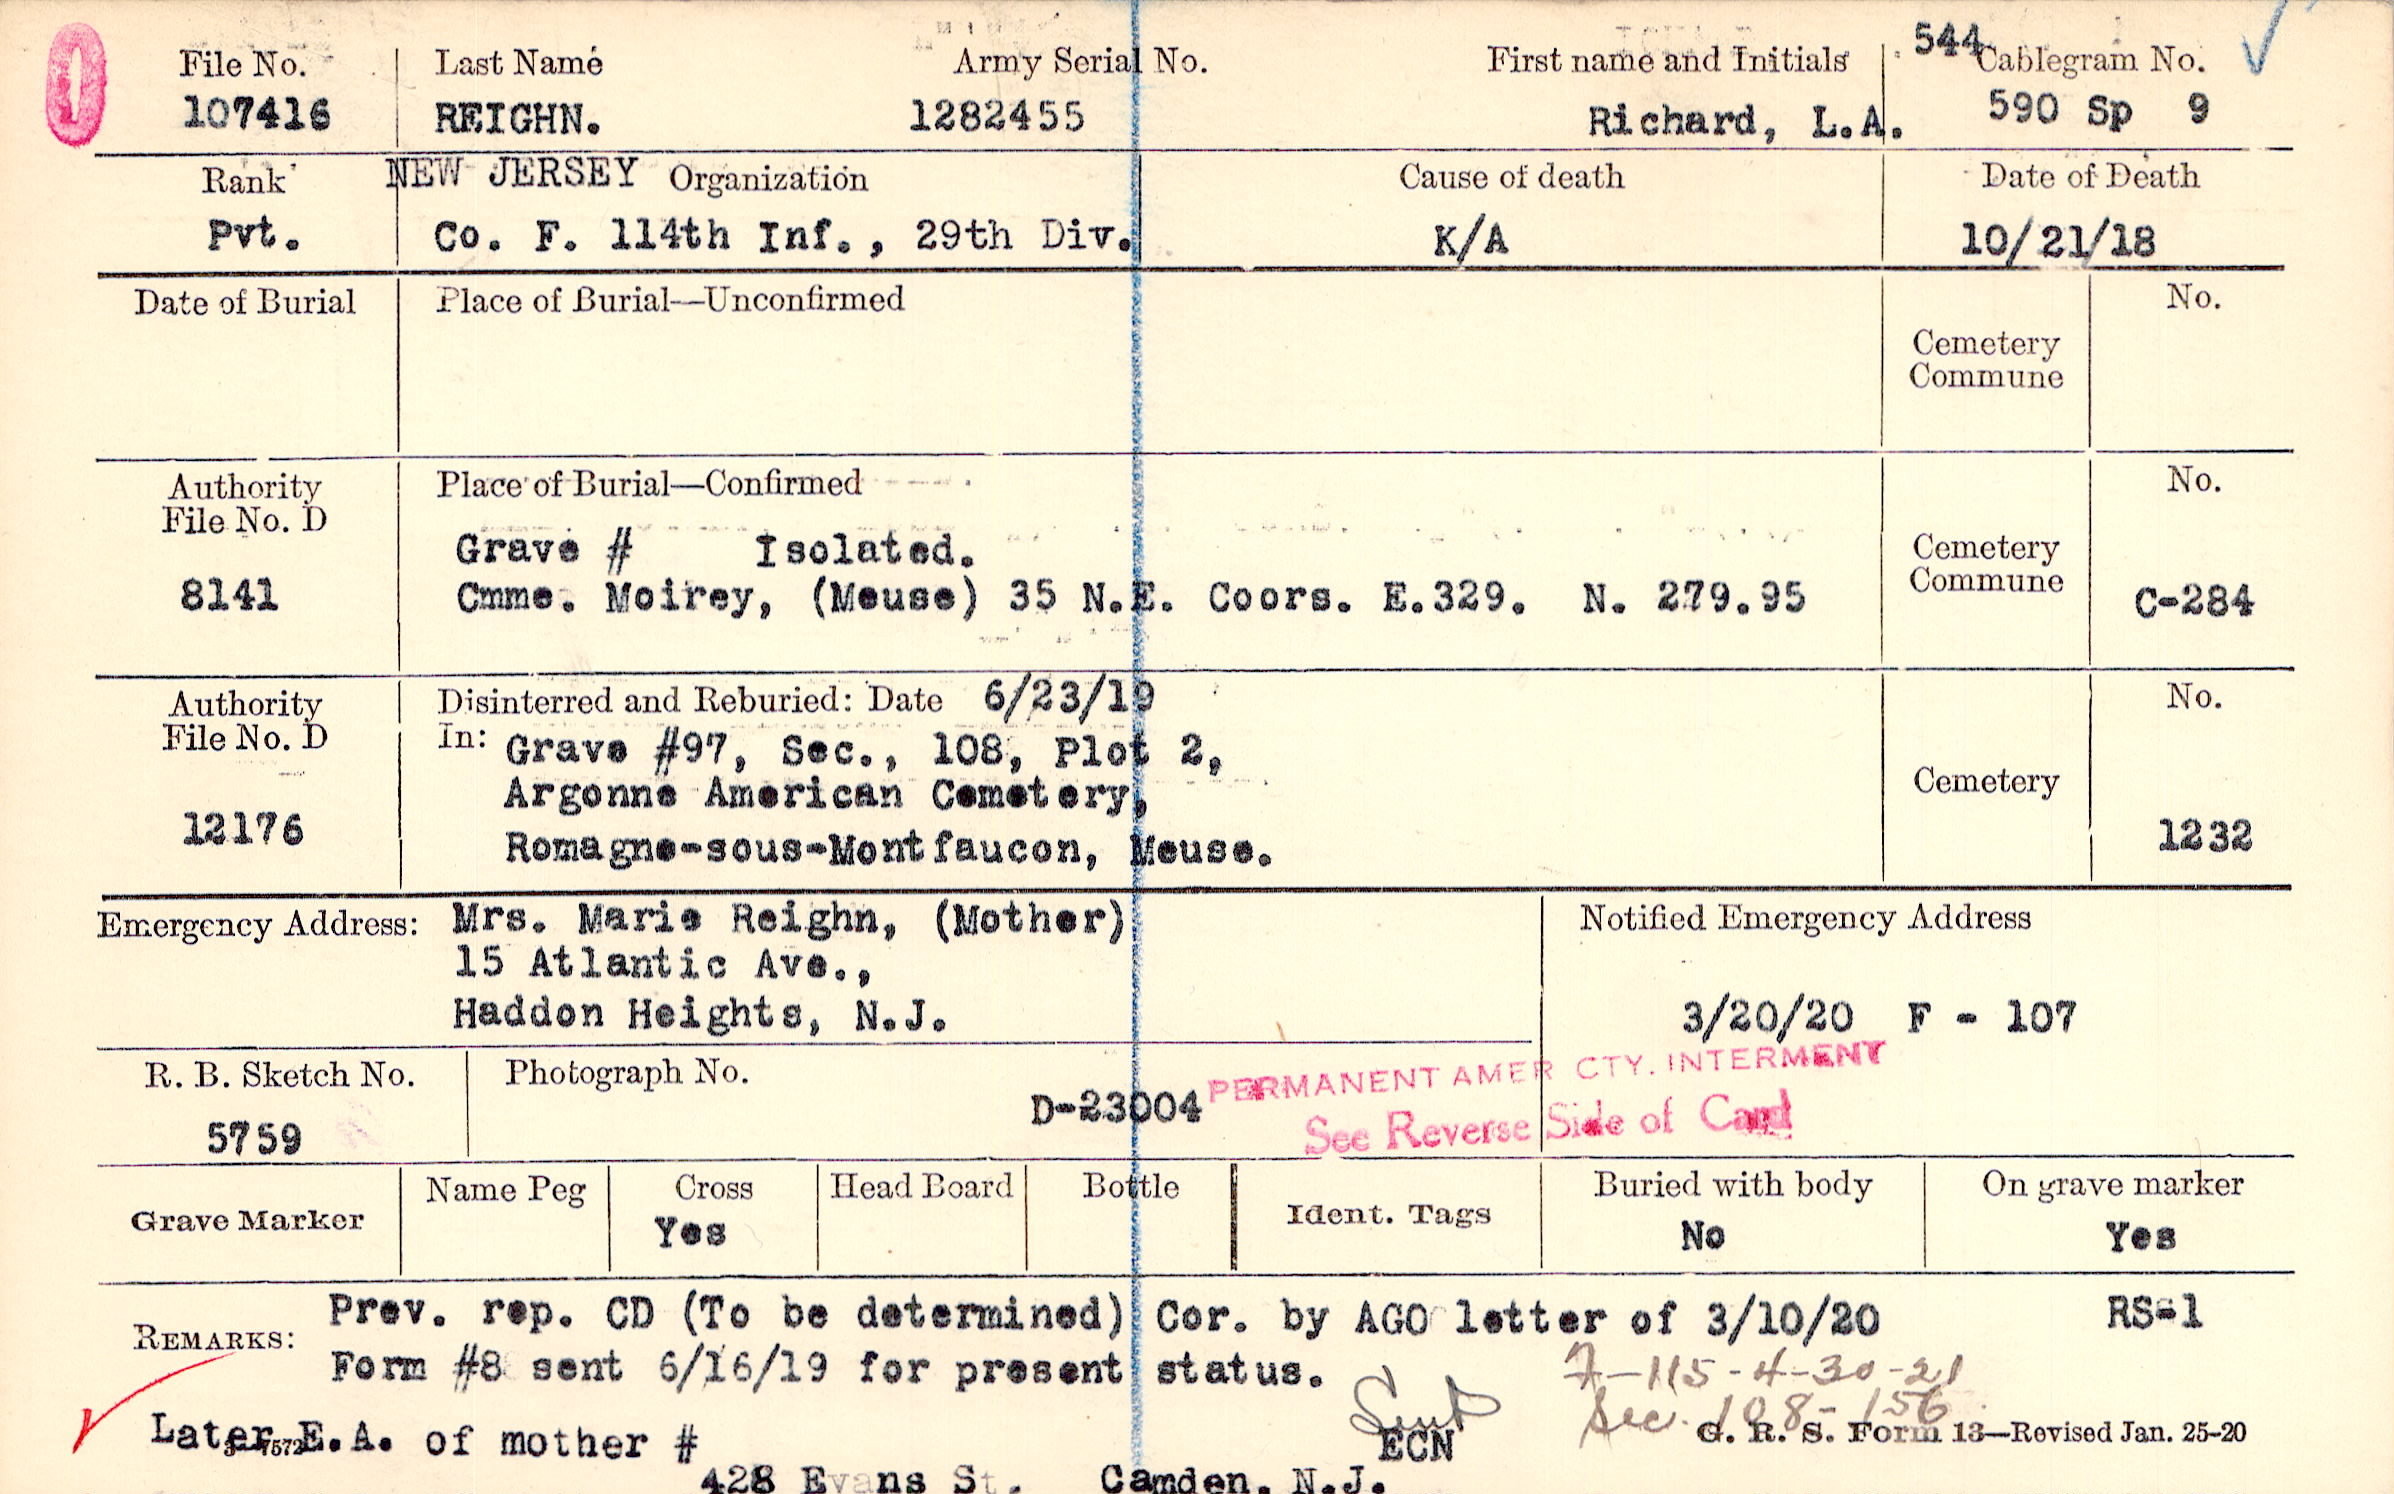 544
File No. Last Name Army Serial No. First name and Initials Cablegram No.
107416 REIGHN. 1282455 Richard, L.A. 590 Sp 9
Rank NEW JERSEY Organization Cause of death Date of Death
Pvt. Co. F. 114th Inf., 29th Div. K/A 10/21/18
Date of Burial Place of Burial—Unconfirmed No.
Cemetery
Commune
Authority Place of Burial—Confirmed No.
File No. D
Grave # Isolated. Cemetery
8141 Cmme. Moirey, (Meuse) 35 N.E. Coors. E.329. N. 279.95 Commune C-284
Authority Disinterred and Reburied: Date 6/23/19 No.
File No. D In: Grave #97, Sec., 108, Plot 2,
Argonne American Cemetery, Cemetery
12176 Romagne-sous-Montfaucon, Meuse. 1232
Emergency Address: Mrs. Marie Reighn, (Mother) Notified Emergency Address
15 Atlantic Ave.,
Haddon Heights, N.J. 3/20/20 F - 107
R. B. Sketch No. Photograph No. PERMANENT AMER CTY. INTERMENT
5759 D-23004 See Reverse Side of Card
Grave Marker Name Peg Cross Head Board Bottle Ident. Tags Buried with body On grave marker
Yes No Yes
REMARKS: Prev. rep. CD (To be determined) Cor. by AGO letter of 3/10/20 RS-1
Form #8 sent 6/16/19 for present status. 7-115-4-30-21
Sec. 108-156
Later E.A. of mother # ECN G. R. S. Form 13—Revised Jan. 25-20
428 Evans St. Camden, N.J.